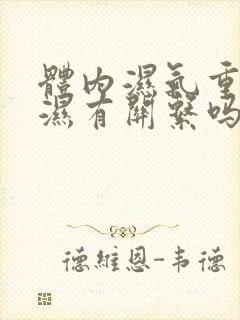 體内濕氣重
濕有關繫嗎
德維恩-韦德